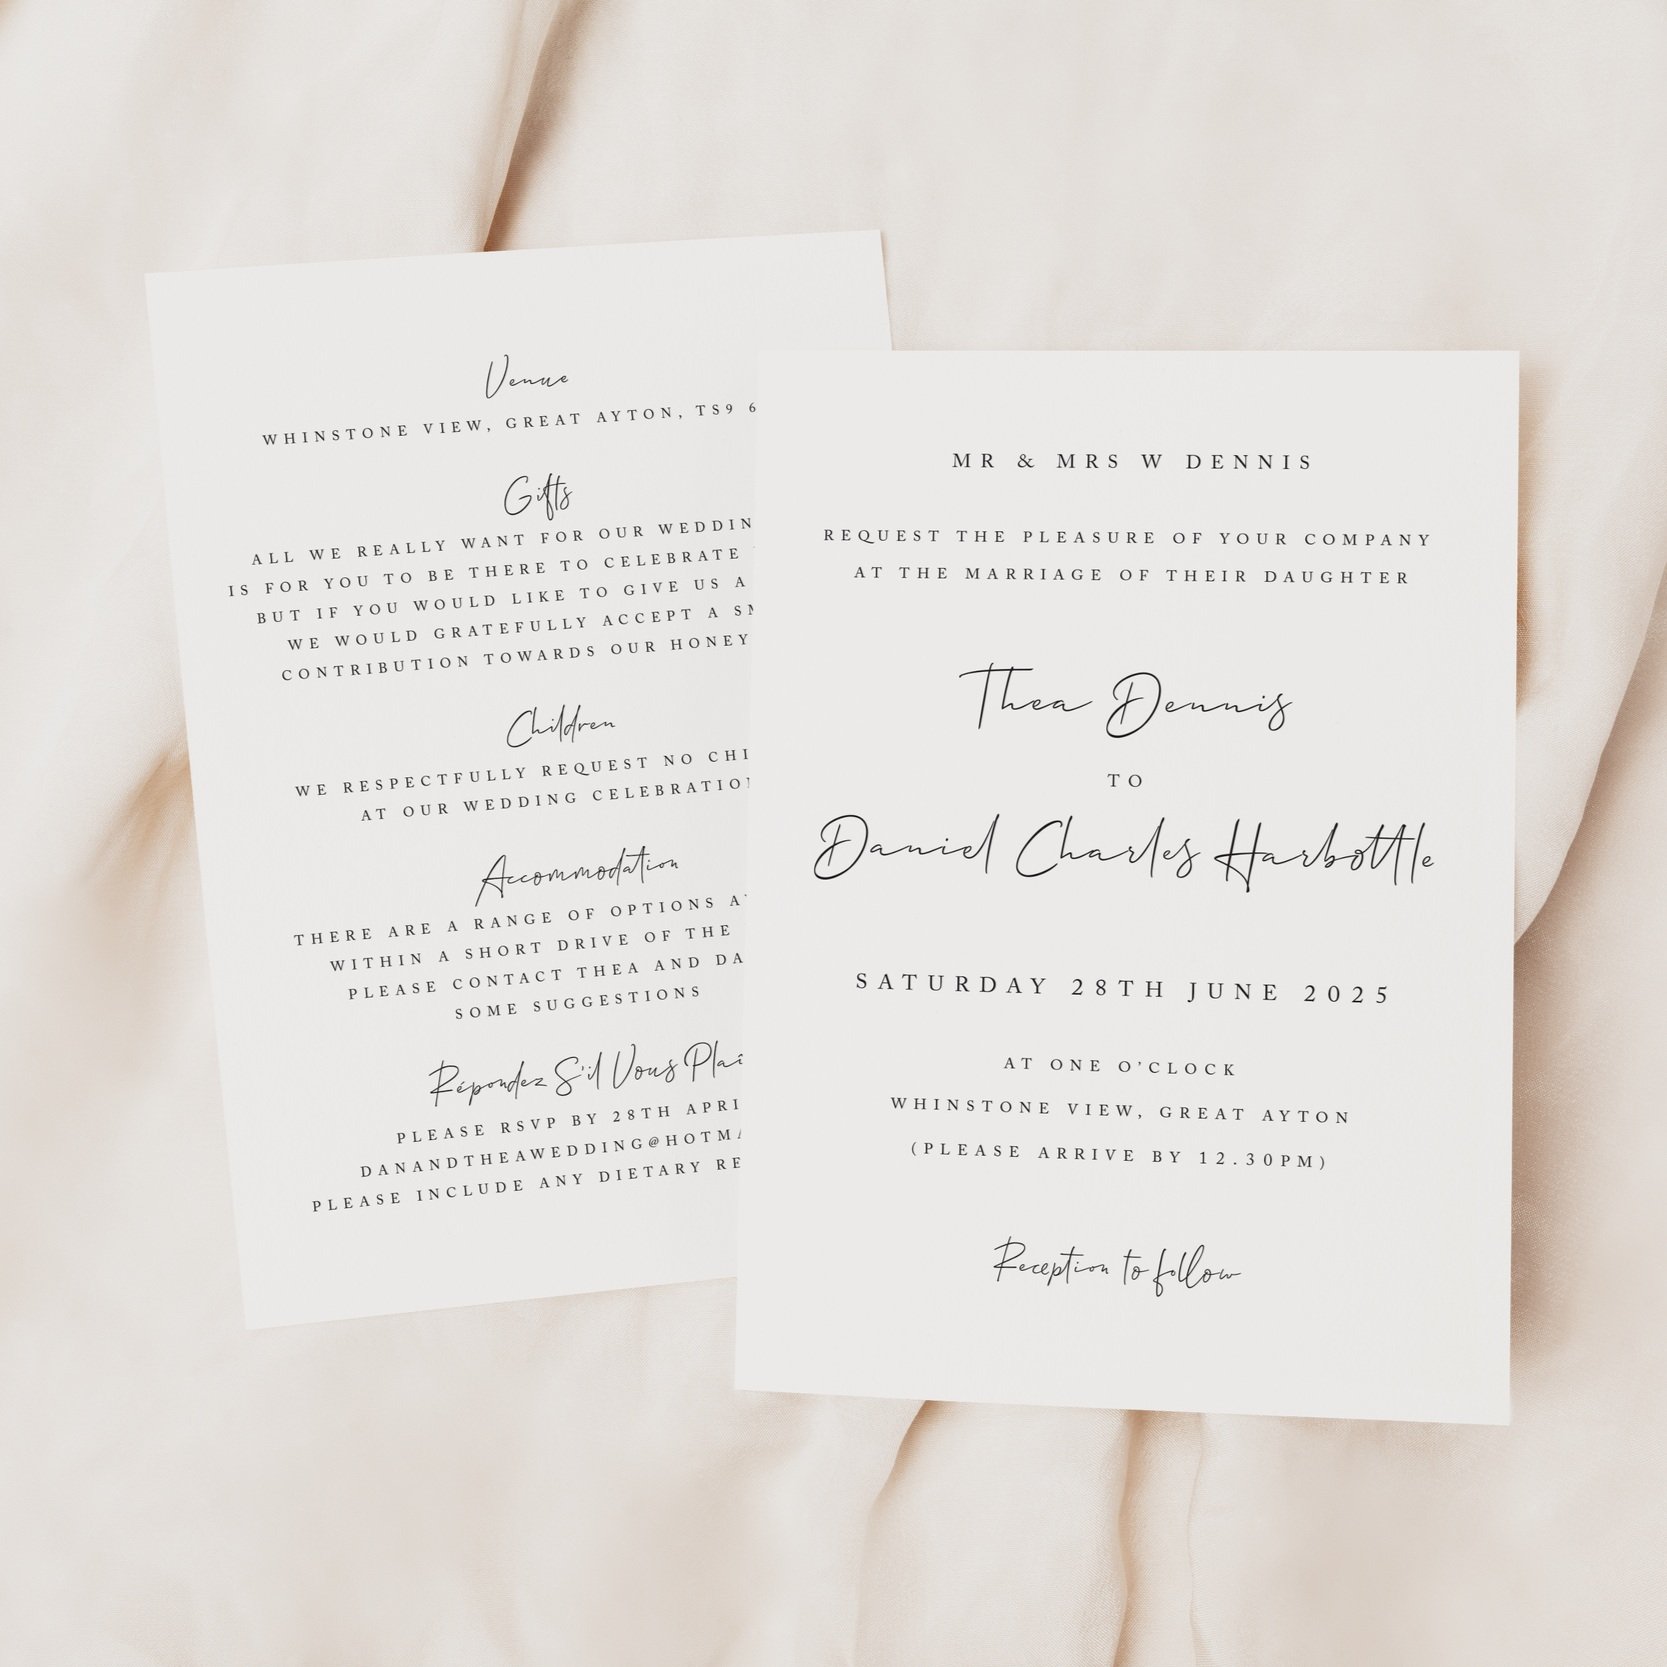 Venue
WHINSTONE VIEW, GREAT AYTON, TS9 6
Gifts
ALL WE REALLY WANT FOR OUR WEDDIN
IS FOR YOU TO BE THERE TO CELEBRATE
BUT IF YOU WOULD LIKE TO GIVE US A
WE WOULD GRATEFULLY ACCEPT A SM
CONTRIBUTION TOWARDS OUR HONEY
Children
WE RESPECTFULLY REQUEST NO CHI
AT OUR WEDDING CELEBRATION
Accommodation
THERE ARE A RANGE OF OPTIONS AV
WITHIN A SHORT DRIVE OF THE
PLEASE CONTACT THEA AND DA
SOME SUGGESTIONS
Répondez S'il Vous Plaî
PLEASE RSVP BY 28TH APRI
DANANDTHEAWEDDING@HOTMA
PLEASE INCLUDE ANY DIETARY RE
MR & MRS W DENNIS
REQUEST THE PLEASURE OF YOUR COMPANY
AT THE MARRIAGE OF THEIR DAUGHTER
Thea Dennis
TO
Daniel Charles Harbottle
SATURDAY 28TH JUNE 2025
AT ONE O'CLOCK
WHINSTONE VIEW, GREAT AYTON
(PLEASE ARRIVE BY 12.30PM)
Reception to follow